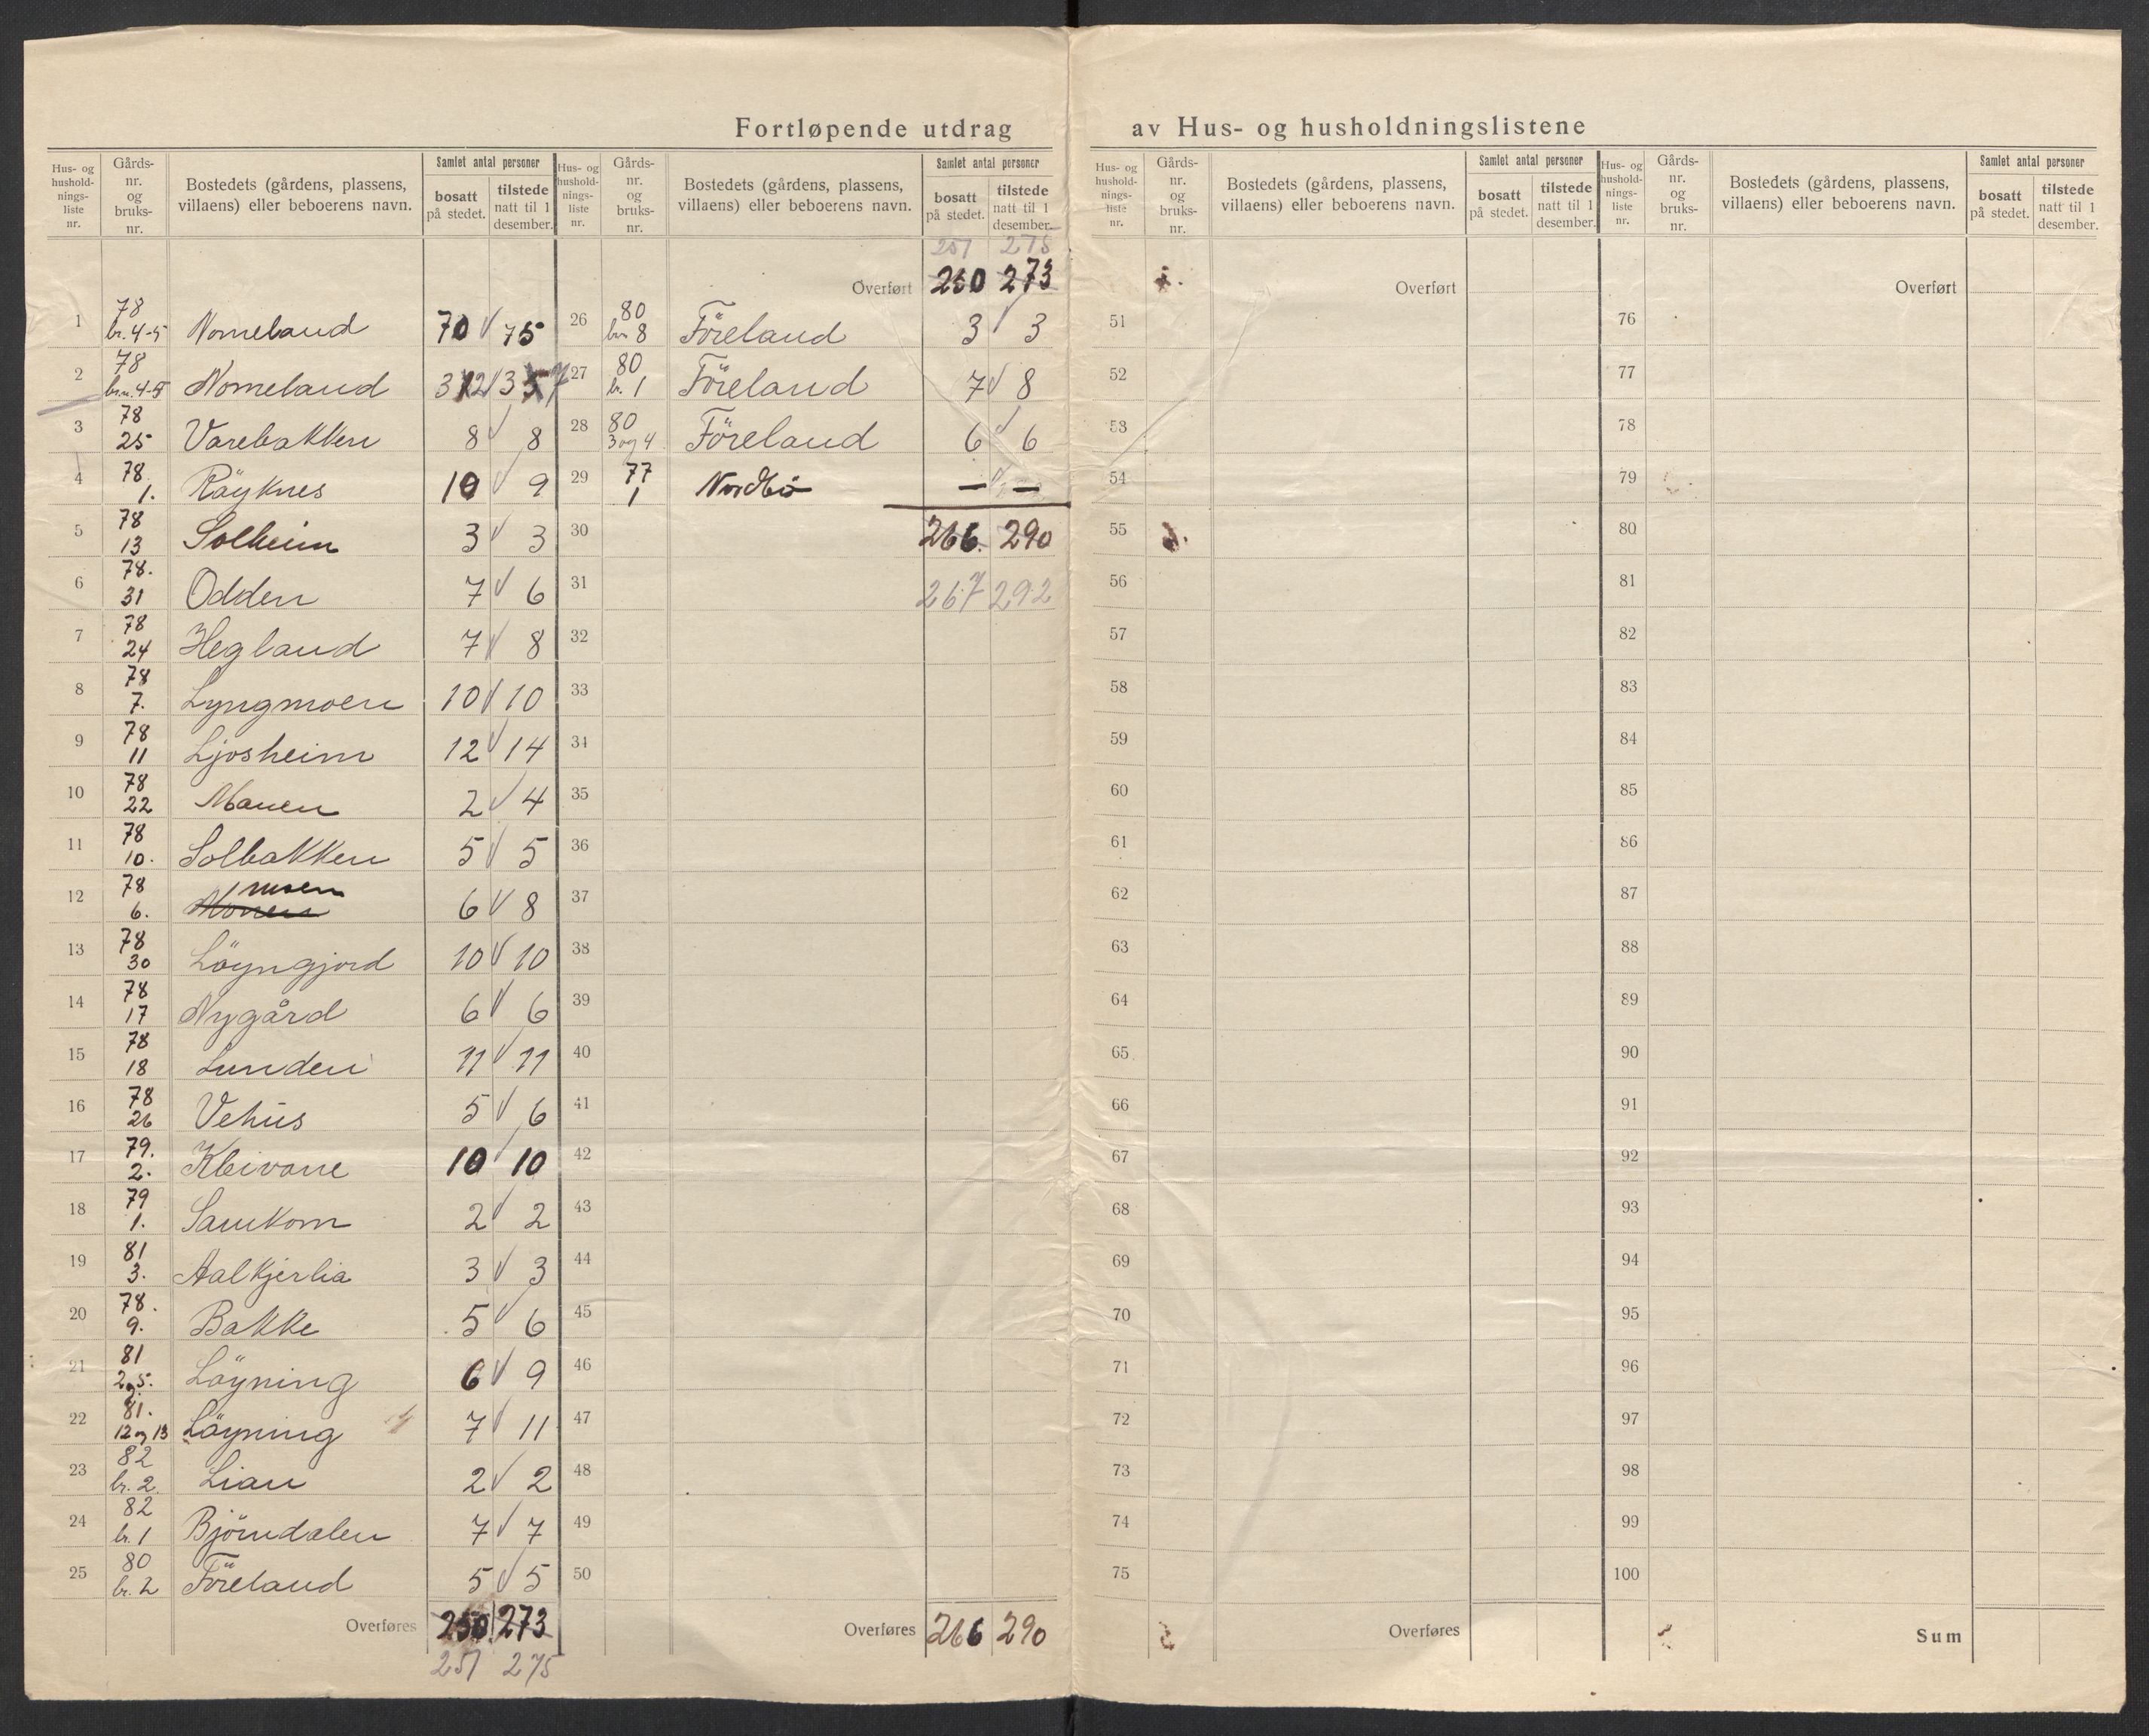 Fortløpende utdrag av Hus- og husholdningslistene
Hus- og hushold-nings-liste nr. Gårds-nr. og bruks-nr. Bostedets (gårdens, plassens, villaens) eller beboerens navn. Samlet antal personer bosatt på stedet. tilstede natt til 1 desember.
1 78 br. 4-5 Nomeland 70 75
2 78 br.n. 4-5 Nomeland 32 37
3 78 25 Varebakken 8 8
4 78 1. Röyknes 10 9
5 78 13 Solheim 3 3
6 78. 31 Odden 7 6
7 78 24 Hegland 7 8
8 78 7. Lyngmoen 10 10
9 78 11 Ljosheim 12 14
10 78 22 Monen 2 4
11 78 10. Solbakken 5 5
12 78 6. Monen moen 6 8
13 78 30 Löyngjord 10 10
14 78 17 Nygård 6 6
15 78 18 Lunden 11 11
16 78 26 Vehus 5 6
17 79. 2. Kleivane 10 10
18 79 1. Samkom 2 2
19 81 3. Aalkjerlia 3 3
20 78. 9. Bakke 5 6
21 81 2 og 5. Löyning 6 9
22 81. 12 og 13 Löyning 7 11
23 82 br. 2. Lian 2 2
24 82 br. 1 Björndalen 7 7
25 80 br. 2 Föreland 5 5
Overføres 250 273
251 275
Hus- og hushold-nings-liste nr. Gårds-nr. og bruks-nr. Bostedets (gårdens, plassens, villaens) eller beboerens navn. Samlet antal personer bosatt på stedet. tilstede natt til 1 desember.
251 275
Overført 250 273
26 80 br 8 Föreland 3 3
27 80 br. 1 Föreland 7 8
28 80 3 og 4 Föreland 6 6
29 77 1 Nordbö — —
30 266. 290
31 267 292
32
33
34
35
36
37
38
39
40
41
42
43
44
45
46
47
48
49
50
Overføres 266 290
Hus- og hushold-nings-liste nr. Gårds-nr. og bruks-nr. Bostedets (gårdens, plassens, villaens) eller beboerens navn. Samlet antal personer bosatt på stedet. tilstede natt til 1 desember.
Overført
51
52
53
54
55
56
57
58
59
60
61
62
63
64
65
66
67
68
69
70
71
72
73
74
75
Overføres
Hus- og hushold-nings-liste nr. Gårds-nr. og bruks-nr. Bostedets (gårdens, plassens, villaens) eller beboerens navn. Samlet antal personer bosatt på stedet. tilstede natt til 1 desember.
Overført
76
77
78
79
80
81
82
83
84
85
86
87
88
89
90
91
92
93
94
95
96
97
98
99
100
Sum